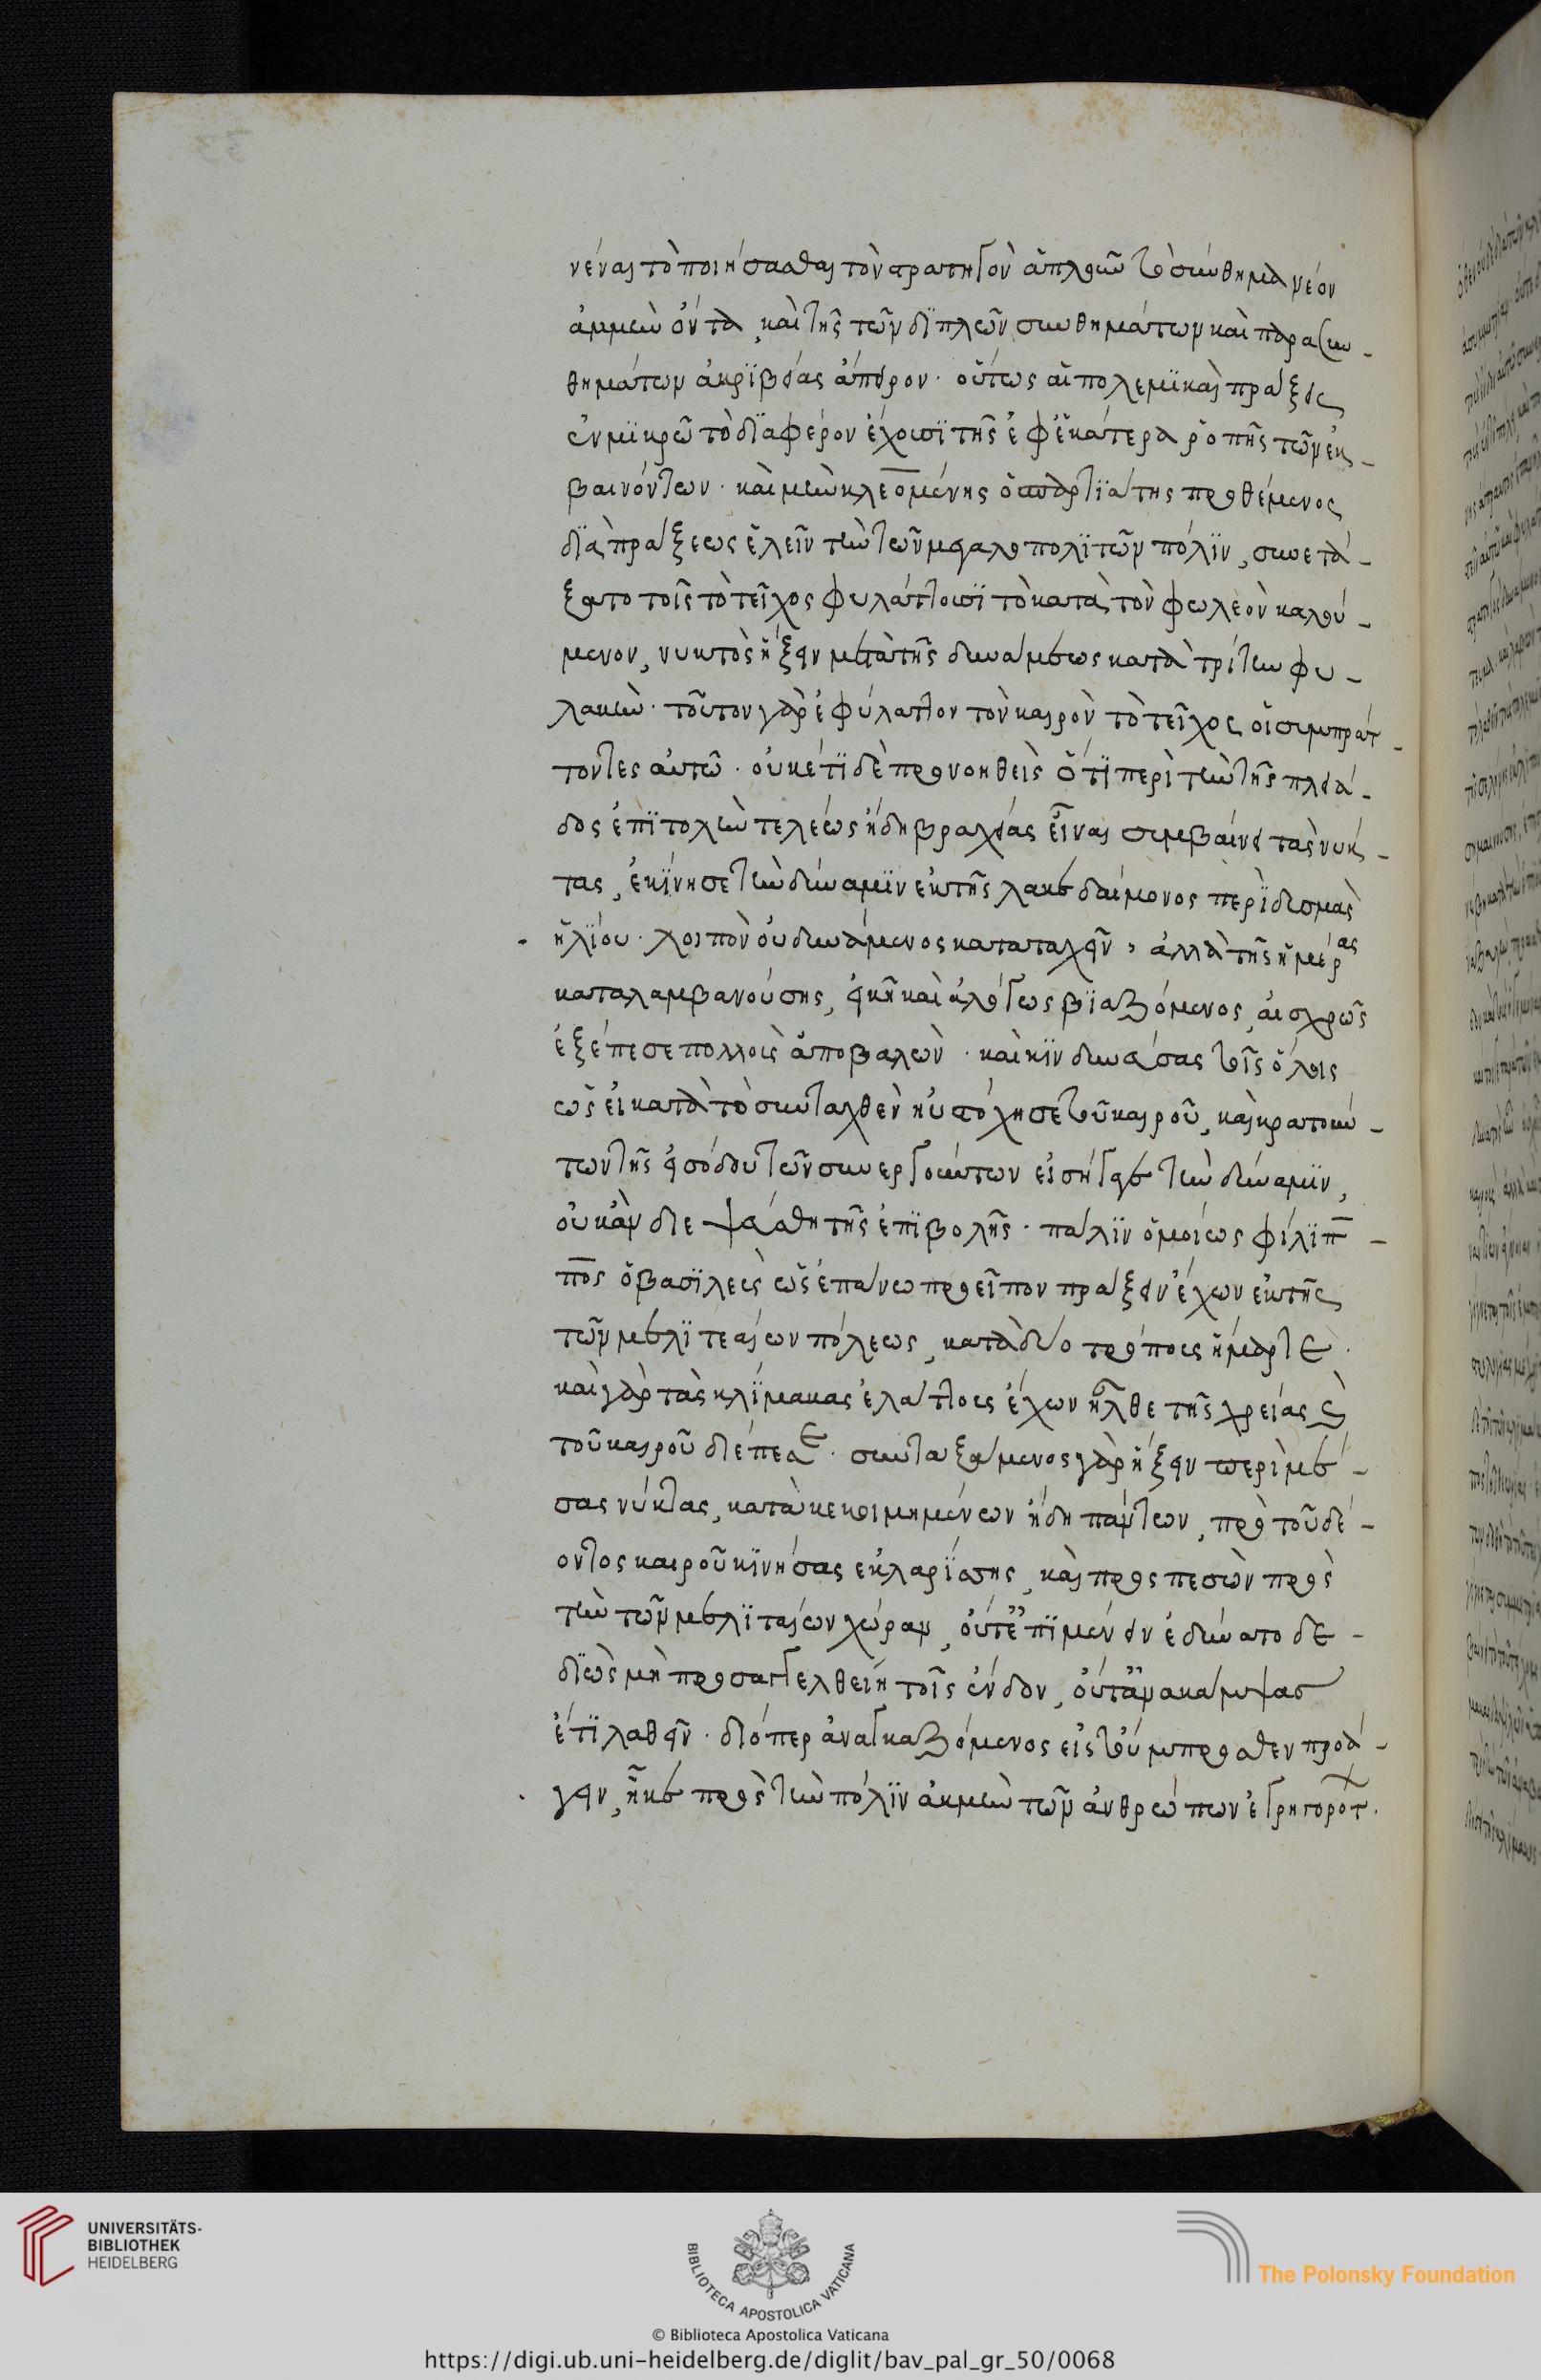 νέναι τὸ ποιήσασθαι τὸν στρατηγὸν ἁπλοῦν τὸ σύνθημα νέον
ἀμμὴν ὄντα, καὶ τῆς τῶν διπλῶν συνθημάτων καὶ παρασυν-
θημάτων ἀκριβείας ἄπειρον. οὕτως αἱ πολεμικαὶ πράξεις
ἐν μικρῶ τὸ διαφέρον ἔχουσι τῆς ἐφ' ἑκάτερα ῥοπῆς τῶν ἐκ-
βαινόντων. καὶ μὴν κλεομένης ὁ σπαρτιάτης προθέμενος
διὰ πράξεως ἑλεῖν τὴν τῶν μεγαλοπολιτῶν πόλιν, συνετά-
ξατο τοῖς τὸ τεῖχος φυλάττουσι τὸ κατὰ τὸν φωλεὸν καλού-
μενον, νυκτὸς ἥξειν μετὰ τῆς δυνάμεως κατὰ τρίτην φυ-
λακὴν. τοῦτον γὰρ ἐφύλαττον τὸν καιρὸν τὸ τεῖχος οἱ συμπράτ-
τοντες αὐτῶ. οὐκέτι δὲ προνοηθεὶς ὅτι περὶ τὴν τῆς πλειά-
δος ἐπιτολὴν τελέως ἤδη βραχείας εἶναι συμβαίνει τὰς νύκ-
τας, ἐκίνησε τὴν δύναμιν ἐκ τῆς λακεδαίμονος περὶ δυσμὰς
ἡλίου. λοιπὸν οὐ δυνάμενος καταταχεῖν, ἀλλὰ τῆς ἡμέρας
καταλαμβανούσης, εἰκῆ καὶ ἀλόγως βιαζόμενος, αἰσχρῶς
ἐξέπεσε πολλοὺς ἀποβαλὼν. καὶ κινδυνεύσας τοῖς ὅλοις
ὡς εἰ κατὰ τὸ συνταχθὲν ηὐστόχησε τοῦ καιροῦ, καὶ κρατούν-
των τῆς εἰσόδου τῶν συνεργούντων εἰσήγαγε τὴν δύναμιν,
οὐκ ἂν διεψεύσθη τῆς ἐπιβολῆς. πάλιν ὁμοίως φίλιπ-
πος ὁ βασιλεὺς ὡς ἐπάνω προεῖπον πρᾶξιν ἔχων ἐκ τῆς
τῶν μελιτεαίων πόλεως, κατὰ δύο τρόπους ἥμαρτε.
καὶ γὰρ τὰς κλίμακας ἐλάττους ἔχων ἦλθε τῆς χρείας καὶ
τοῦ καιροῦ διέπεσε. συνταξάμενος γὰρ ἥξειν περὶ μέ-
σας νύκτας, κατακεκοιμημένων ἤδη πάντων, πρὸ τοῦ δέ-
οντος καιροῦ κινήσας ἐκ λαρίσσης, καὶ προσπεσὼν πρὸς
τὴν τῶν μελιταίων χώραν, οὔτ' ἐπιμένειν ἐδύνατο δε-
διὼς μὴ προσαγγελθείη τοῖς ἔνδον, οὔτ' ἀνακάμψας
ἔτι λαθεῖν. διόπερ ἀναγκαζόμενος εἰς τοὔμπροσθεν προά-
γειν, ἧκε πρὸς τὴν πόλιν ἀκμὴν τῶν ἀνθρώπων ἐγρηγορότ.
UNIVERSITÄTS-
BIBLIOTHEK
HEIDELBERG
BIBLIOTECA APOSTOLICA VATICANA
The Polonsky Foundation
© Biblioteca Apostolica Vaticana
https://digi.ub.uni-heidelberg.de/diglit/bav_pal_gr_50/0068